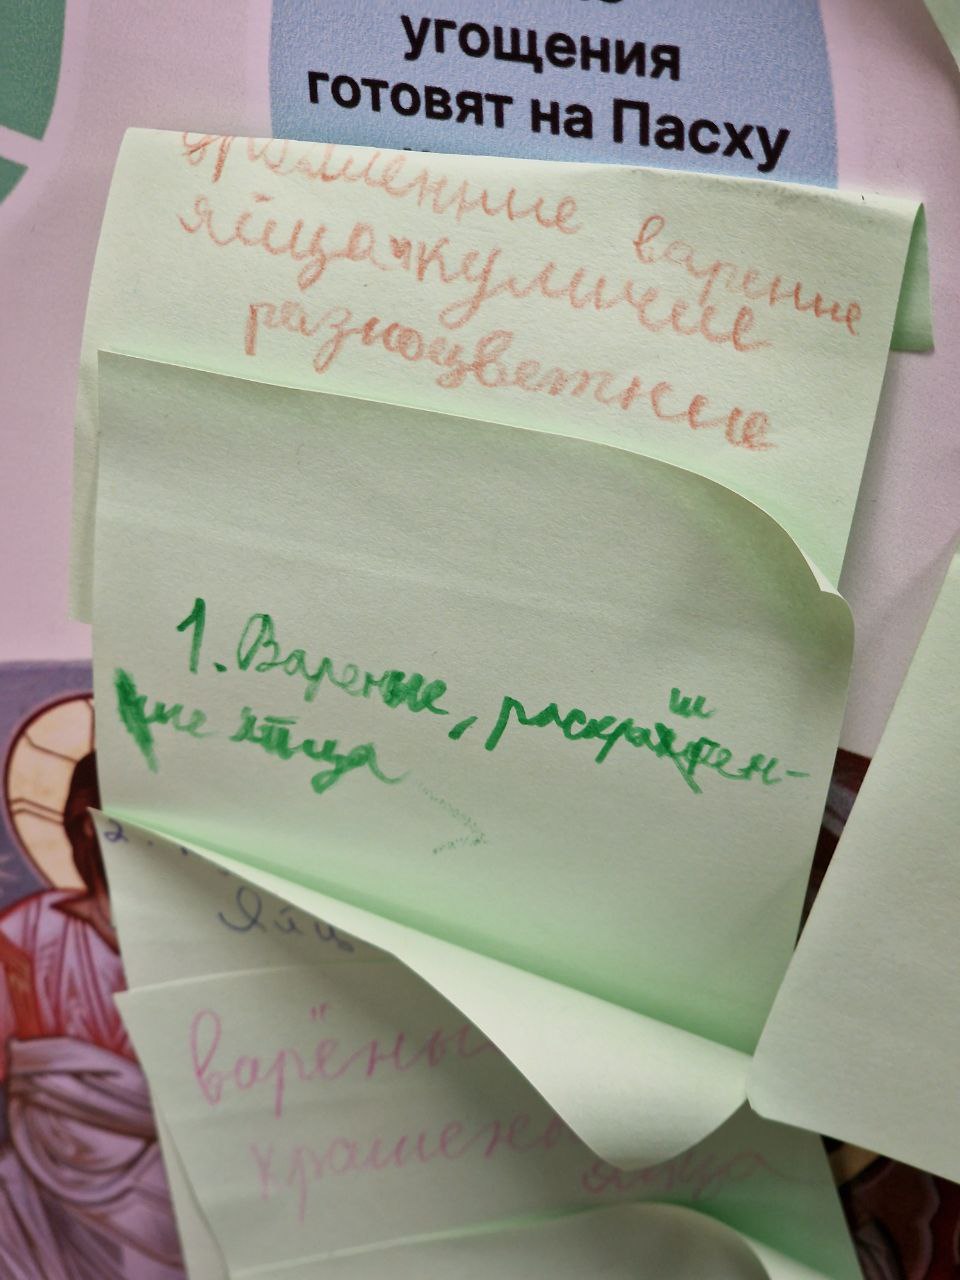 угощения
готовят на Пасху
варенние
яйца и куличие
разноцветние
1. Вареные, раскрашен-
ные яйца
2.
Яйц
варёны
крашены
яйца